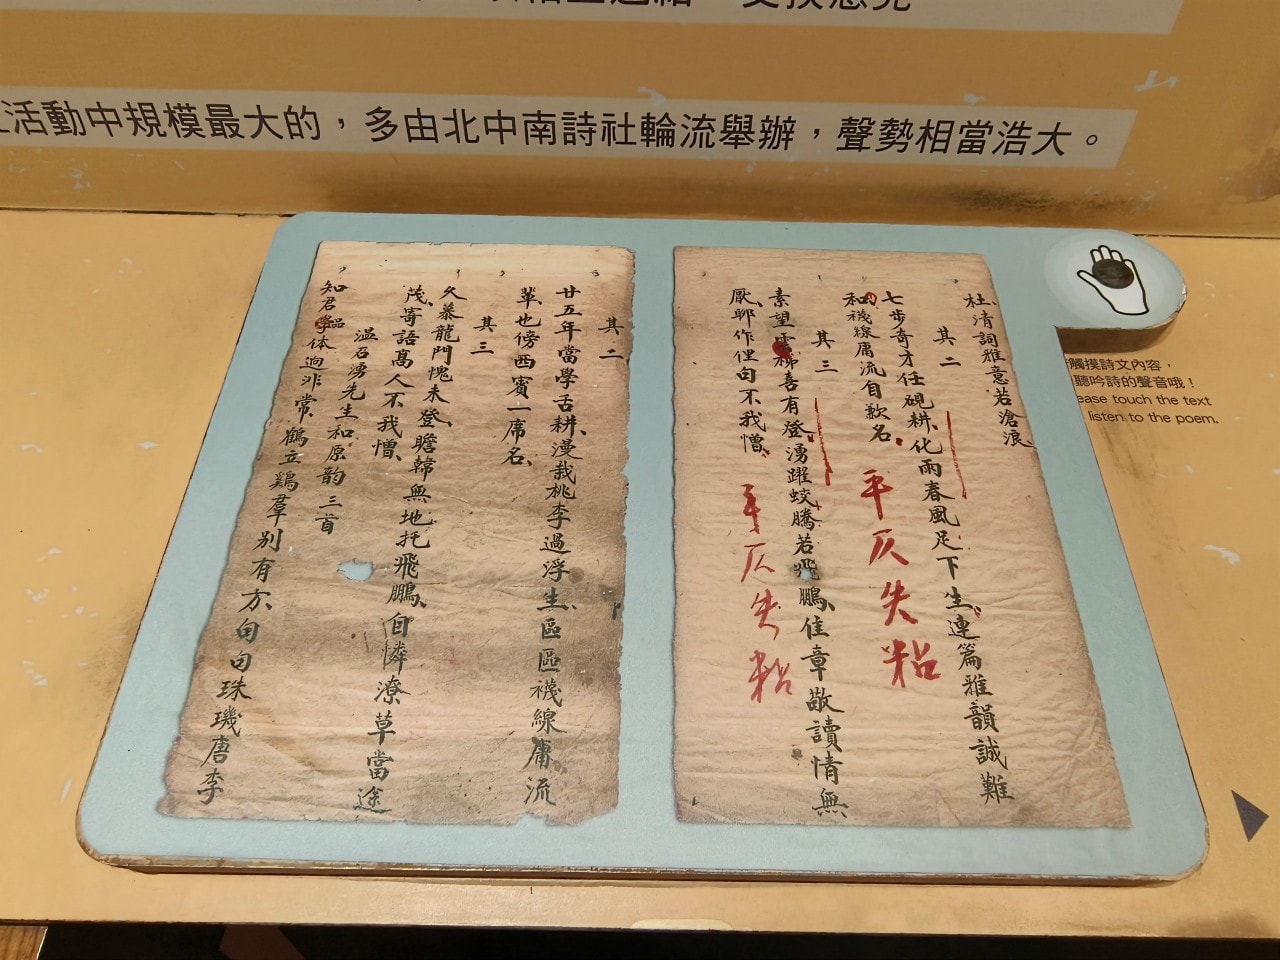 活動中規模最大的，多由北中南詩社輪流舉辦，聲勢相當浩大。
其二
廿五年當學舌耕、漫栽桃李過浮生、區區襪線庸流
輩、也傍西賓一席名、
其三
久慕龍門愧未登、瞻韓無地托飛鵬、自憐潦草當途
茂、寄語高人不我憎、
溫石湧先生和原韵三首
知君品体迥非常、鶴立鷄羣別有方、句句珠璣唐李
杜、清詞雅意若滄浪、
其二
七步奇才任硯耕、化雨春風足下生、連篇雅韻誠難
和、襪線庸流自歉名、
平仄失粘
其三
素望雲梯喜有登、湧躍蛟騰若飛鵬、佳章敬讀情無
厭、聊作俚句不我憎、
平仄失粘
觸摸詩文內容，
聽吟詩的聲音哦！
ease touch the text
listen to the poem.